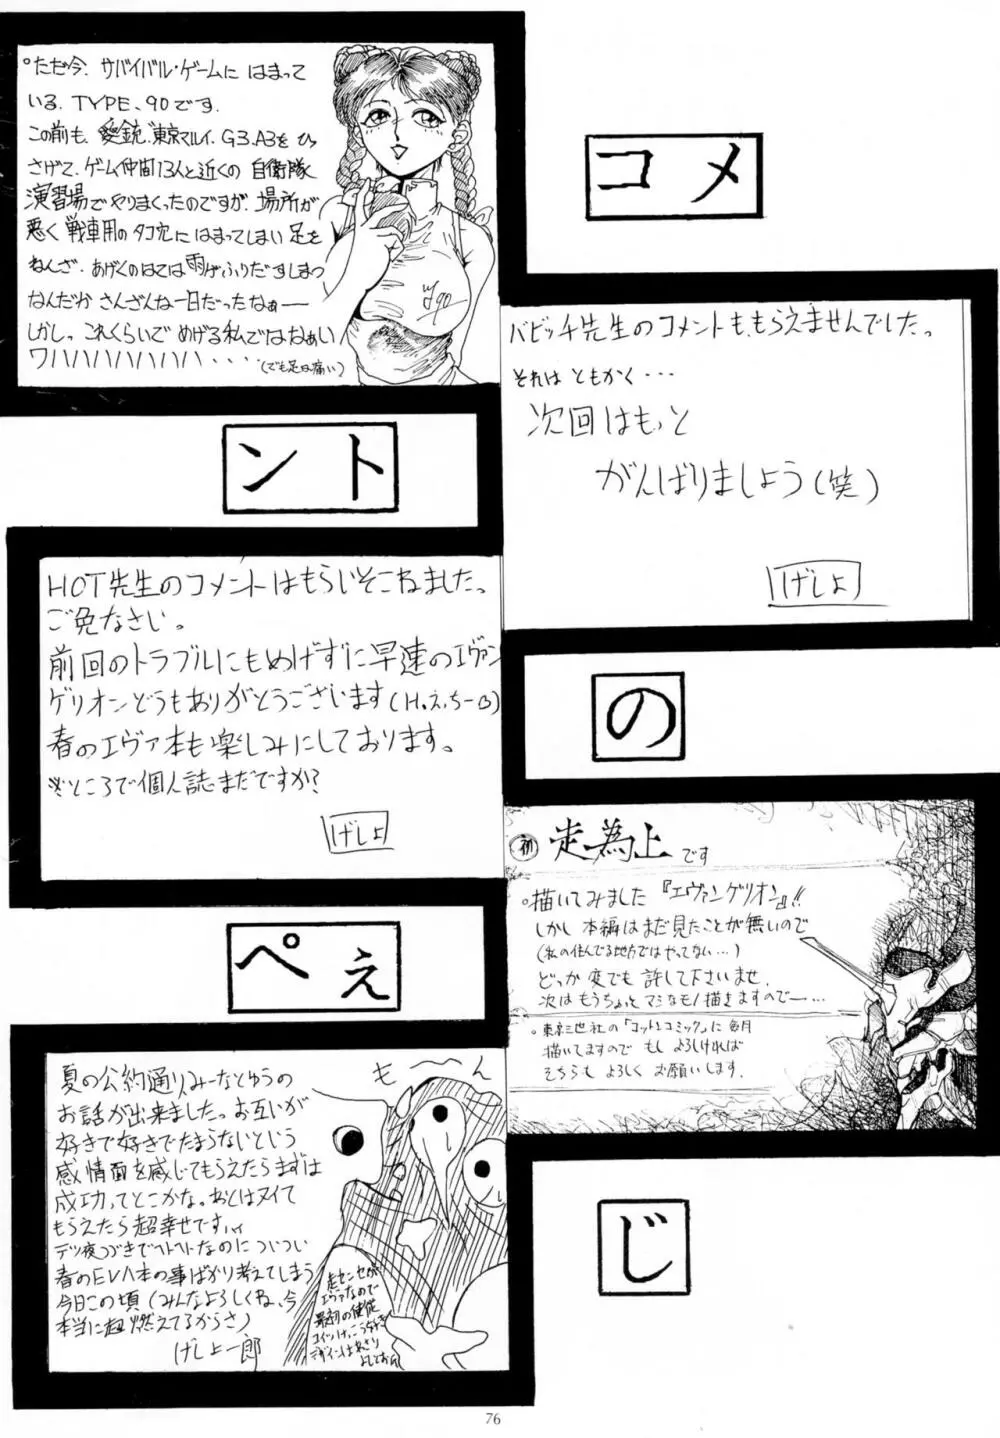 コメ
ント
のぺぇじ
°ただ今、サバイバル・ゲームに はまって
いる、TYPE、90です。
この前も、愛銃、東京マルイ、G3.A3を ひっ
さげて、ゲーム仲間13人と近くの 自衛隊
演習場でやりまくったのですが、場所が
悪く 戦車用のタコ穴に はまってしまい 足を
ねんざ、あげくのはては雨がふりだすしまつ
なんだか さんざんな一日だったなぁー
しかし、これくらいで めげる私ではなぁい
ワハハハハハハハハハ・・・・(でも足は痛い)
バビッチ先生のコメントも、もらえませんでした。
それは ともかく・・・
次回はもっと
がんばりましょう(笑)
げしょ
HOT先生のコメントはもらいそこねました。
ご免なさい。
前回のトラブルにもめげずに早速のエヴァン
ゲリオンどうもありがとうございます(H.え.ちーB)
春のエヴァ本も楽しみにしております。
※ところで個人誌まだですか?
げしょ
初 走為上です
°描いてみました『エヴァンゲリオン』!!
しかし 本編はまだ見たことが無いので
(私の住んでる地方ではやってない…)
どっか変でも 許して下さいませ、
次は もうちょっと マシなモノ描きますのでー・・・
°東京三世社の「コットンコミック」に 毎月
描いてますので もし よろしければ
そちらも よろしく お願いします。
夏の公約通りみーなとゆうの
お話が出来ました。お互いが
好きで好きでたまらないという
感情面を感じてもらえたらまずは
成功ってとこかな。あとはヌイて
もらえたら超幸せですぃ
デツ夜つづきでヘトヘトなのについつい
春のEVA本の事ばかり考えてしまう
今日この頃(みんなよろしくね、今
本当に超燃えてるからさ)
げしょ一郎
も〜〜ん
走センセが
エヴァなので
最初の使徒
76